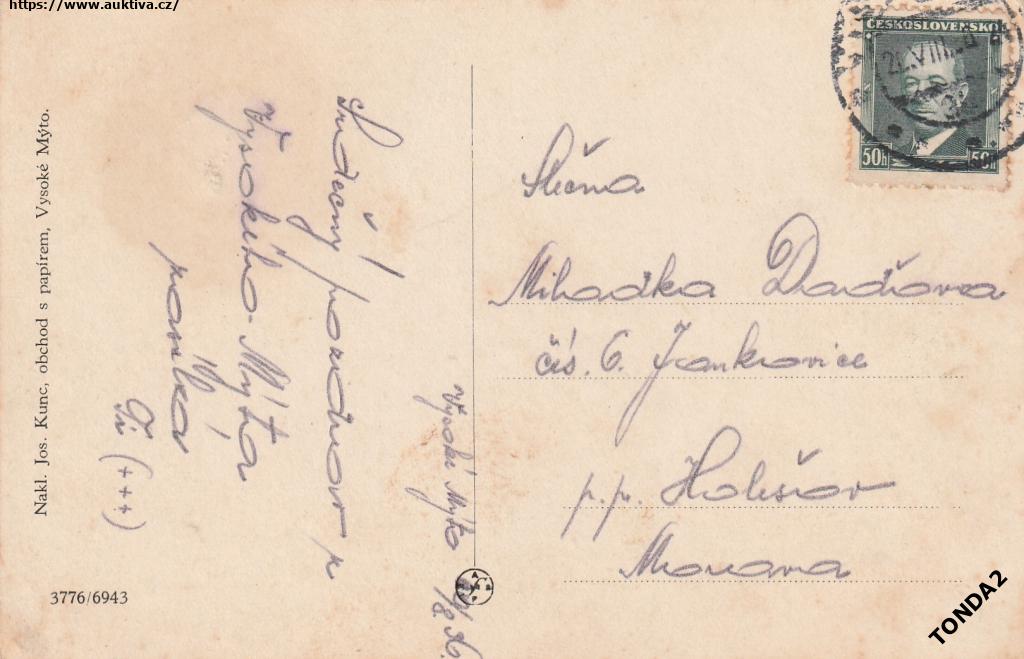 https://www.auktiva.cz/
ČESKOSLOVENSKO
50h 50h
Nakl. Jos. Kunc, obchod s papírem, Vysoké Mýto.
3776/6943
Srdečný pozdrav z
Vysokého-Mýta
posílá
Ti (+++)
Vysoké Mýto
Slečna
čís. 6. Jankovice
p. p. Holešov
Morava
TONDA2